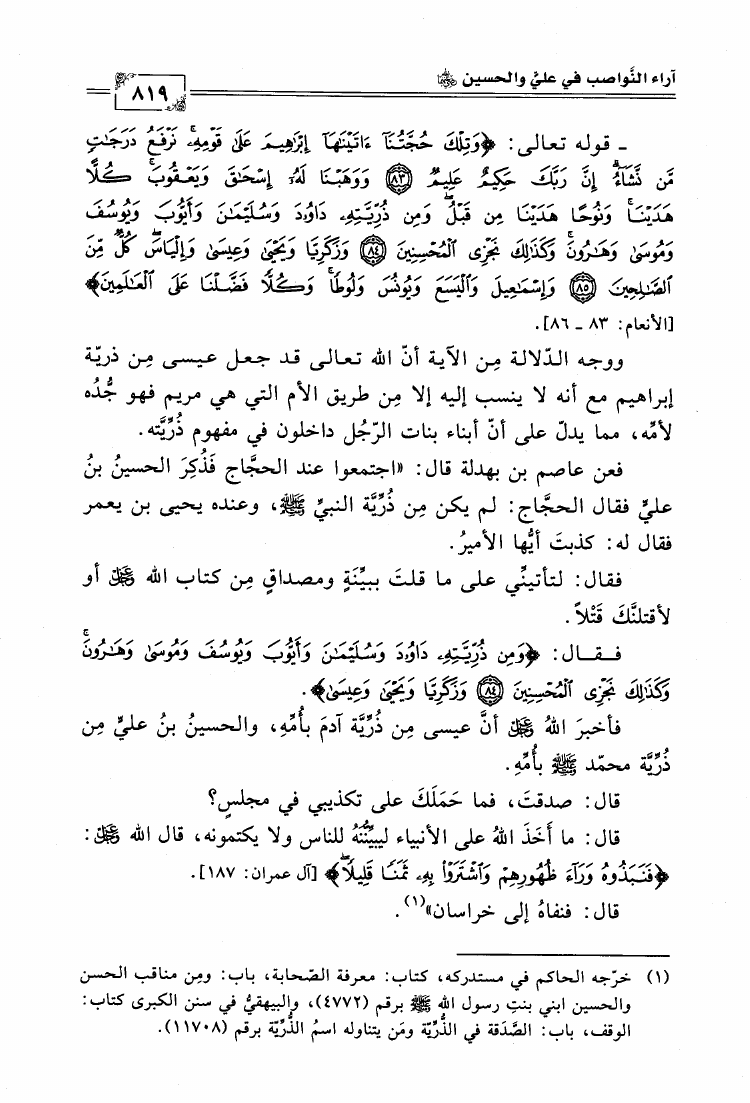 آراء النَّواصب في عليٍّ والحسين ﵄
٨١٩
ـ قوله تعالى: ﴿وَتِلْكَ حُجَّتُنَآ ءَاتَيْنَٰهَآ إِبْرَٰهِيمَ عَلَىٰ قَوْمِهِۦۚ نَرْفَعُ دَرَجَٰتٍ
مَّن نَّشَآءُۗ إِنَّ رَبَّكَ حَكِيمٌ عَلِيمٌ ۝٨٣ وَوَهَبْنَا لَهُۥٓ إِسْحَٰقَ وَيَعْقُوبَۚ كُلًّا
هَدَيْنَاۚ وَنُوحًا هَدَيْنَا مِن قَبْلُۖ وَمِن ذُرِّيَّتِهِۦ دَاوُۥدَ وَسُلَيْمَٰنَ وَأَيُّوبَ وَيُوسُفَ
وَمُوسَىٰ وَهَٰرُونَۚ وَكَذَٰلِكَ نَجْزِى ٱلْمُحْسِنِينَ ۝٨٤ وَزَكَرِيَّا وَيَحْيَىٰ وَعِيسَىٰ وَإِلْيَاسَۖ كُلٌّ مِّنَ
ٱلصَّٰلِحِينَ ۝٨٥ وَإِسْمَٰعِيلَ وَٱلْيَسَعَ وَيُونُسَ وَلُوطًاۚ وَكُلًّا فَضَّلْنَا عَلَى ٱلْعَٰلَمِينَ﴾
[الأنعام: ٨٣ ـ ٨٦].
ووجه الدّلالة مِن الآية أنّ الله تعالى قد جعل عيسى مِن ذريّة
إبراهيم مع أنه لا ينسب إليه إلا مِن طريق الأم التي هي مريم فهو جُّده
لأمِّه، مما يدلّ على أنّ أبناء بنات الرّجُل داخلون في مفهوم ذُرِّيَّته.
فعن عاصم بن بهدلة قال: «اجتمعوا عند الحجَّاج فَذُكِرَ الحسينُ بنُ
عليٍّ فقال الحجَّاج: لم يكن مِن ذُرِّيَّة النبيِّ ﷺ، وعنده يحيى بن يعمر
فقال له: كذبتَ أيُّها الأميرُ.
فقال: لتأتينِّي على ما قلتَ ببيِّنَةٍ ومصداقٍ مِن كتاب الله ﷿ أو
لأقتلنَّكَ قَتْلاً.
فـقـال: ﴿وَمِن ذُرِّيَّتِهِۦ دَاوُۥدَ وَسُلَيْمَٰنَ وَأَيُّوبَ وَيُوسُفَ وَمُوسَىٰ وَهَٰرُونَۚ
وَكَذَٰلِكَ نَجْزِى ٱلْمُحْسِنِينَ ۝٨٤ وَزَكَرِيَّا وَيَحْيَىٰ وَعِيسَىٰ﴾.
فأخبرَ اللهُ ﷿ أنَّ عيسى مِن ذُرِّيَّة آدمَ بأُمِّهِ، والحسينُ بنُ عليٍّ مِن
ذُرِّيَّة محمّد ﷺ بأُمِّهِ.
قال: صدقتَ، فما حَمَلَكَ على تكذيبي في مجلسٍ؟
قال: ما أَخَذَ اللهُ على الأنبياء ليبيِّنُنَّهُ للناس ولا يكتمونه، قال الله ﷿:
﴿فَنَبَذُوهُ وَرَآءَ ظُهُورِهِمْ وَٱشْتَرَوْا۟ بِهِۦ ثَمَنًا قَلِيلًاۖ﴾ [آل عمران: ١٨٧].
قال: فنفاهُ إلى خراسان»(١).
(١) خرّجه الحاكم في مستدركه، كتاب: معرفة الصّحابة، باب: ومِن مناقب الحسن
والحسين ابني بنتِ رسول الله ﷺ برقم (٤٧٧٢)، والبيهقيُّ في سنن الكبرى كتاب:
الوقف، باب: الصَّدَقة في الذُّرِّيَّة ومَن يتناوله اسمُ الذُّرِّيَّة برقم (١١٧٠٨).